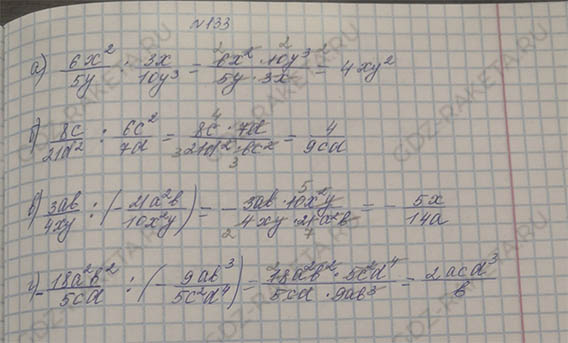 №133
а) 6x²/5y : 3x/10y³ = 6x²·10y³/5y·3x = 4xy²
б) 8c/21d² : 6c²/7d = 8c·7d/21d²·6c² = 4/9cd
в) 3ab/4xy : (- 21a²b/10x²y) = - 3ab·10x²y/4xy·21a²b = - 5x/14a
г) - 18a²b²/5cd : (- 9ab³/5c²d⁴) = 18a²b²·5c²d⁴/5cd·9ab³ = 2acd³/b
GDZ-RAKETA.RU